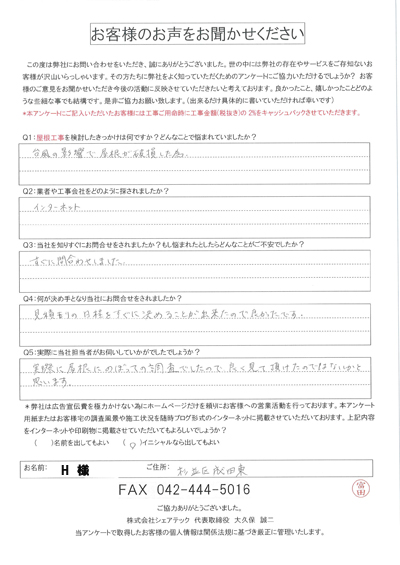 お客様のお声をお聞かせください
この度は弊社にお問い合わせをいただき、誠にありがとうございました。世の中には弊社の存在やサービスをご存知ないお
客様が沢山いらっしゃいます。その方たちに弊社をよく知っていただくためのアンケートにご協力いただけるでしょうか？ お客
様のご意見をお聞かせいただき今後の活動に反映させていただきたいと考えております。良かったこと、嬉しかったことどのよ
うな些細な事でも結構です。是非ご協力お願い致します。（出来るだけ具体的に書いていただければ幸いです）
*本アンケートにご記入いただいたお客様には工事ご用命時に工事金額(税抜き)の 2%をキャッシュバックさせていただきます。
Q1:屋根工事を検討したきっかけは何ですか？どんなことで悩まれていましたか？
台風の影響で屋根が破損した為。
Q2:業者や工事会社をどのように探されましたか？
インターネット
Q3:当社を知りすぐにお問合せをされましたか？もし悩まれたとしたらどんなことがご不安でしたか？
すぐに問合わせしました。
Q4:何が決め手となり当社にお問合せをされましたか？
見積もりの日程をすぐに決めることが出来たので良かったです。
Q5:実際に当社担当者がお伺いしていかがでしたでしょうか？
実際に屋根にのぼっての調査でしたので良く見て頂けたのではないかと
思います。
*弊社は広告宣伝費を極力かけない為にホームページだけを頼りにお客様への営業活動を行っております。本アンケート
用紙またはお客様宅の調査風景や施工状況を随時ブログ形式のインターネットに掲載させていただいております。上記内容
をインターネットや印刷物に掲載させていただいてもよろしいでしょうか？
（ ）名前を出してもよい （○）イニシャルなら出してもよい
お名前: H 様 ご住所: 杉並区成田東
FAX 042-444-5016
ご協力ありがとうございました。
株式会社シェアテック 代表取締役 大久保 誠二
当アンケートで取得したお客様の個人情報は関係法規に基づき厳正に管理いたします。